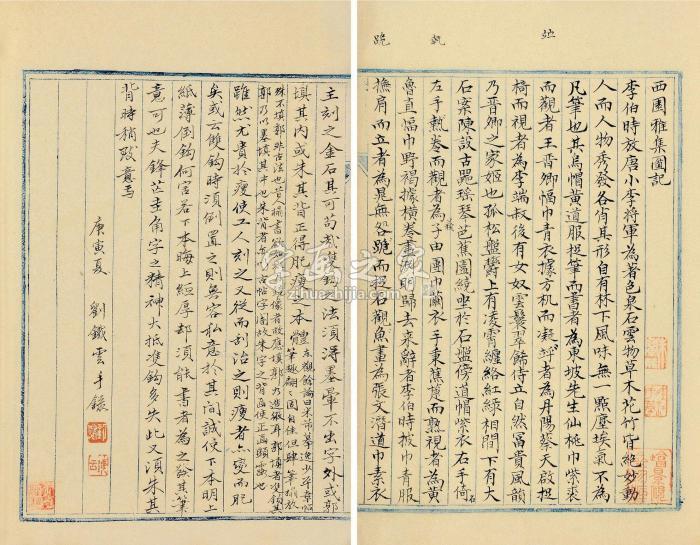 西園雅集圖記
李伯時效唐小李將軍為著色泉石雲物草木花竹皆絕妙動
人而人物秀發各肖其形自有林下風味無一點塵埃氣不為
凡筆也其烏帽黃道服捉筆而書者為東坡先生仙桃巾紫裘
而觀者王晉卿幅巾青衣據方机而凝竚者為丹陽蔡天啟捉
椅而視者為李端叔後有女奴雲鬟翠飾侍立自然富貴風韻
乃晉卿之家姬也孤松盤鬱上有凌霄纏絡紅綠相間下有大
石案陳設古器瑤琴芭蕉圍繞坐於石盤傍道帽紫衣右手倚石
左手執卷而觀者為子由團巾繭衣手秉蕉箑而熟視者為黃
魯直幅巾野褐據橫卷畫淵明歸去來辭者李伯時披巾青服
撫肩而立者為晁無咎跪而捉石觀魚畫為張文潛道巾素衣
竝 執 跪
主刻之金石其可苟哉雙鉤法須得墨暈不出字外或郭
填其內或朱其背正得肥瘦之本體
雖然尤貴於瘦使工人刻之又從而刮治之則瘦者亦變而肥
矣或云雙鉤時須倒置之則無容私意於其間誠使下本明上
紙薄倒鉤何害若下本晦上紙厚却須能書者為之發其筆
意可也夫鋒芒圭角字之精神大抵雙鉤多失此又須朱其
背時稍致意焉
庚寅夏 劉鐵雲手錄
字画之家
www.zihuazhijia.com